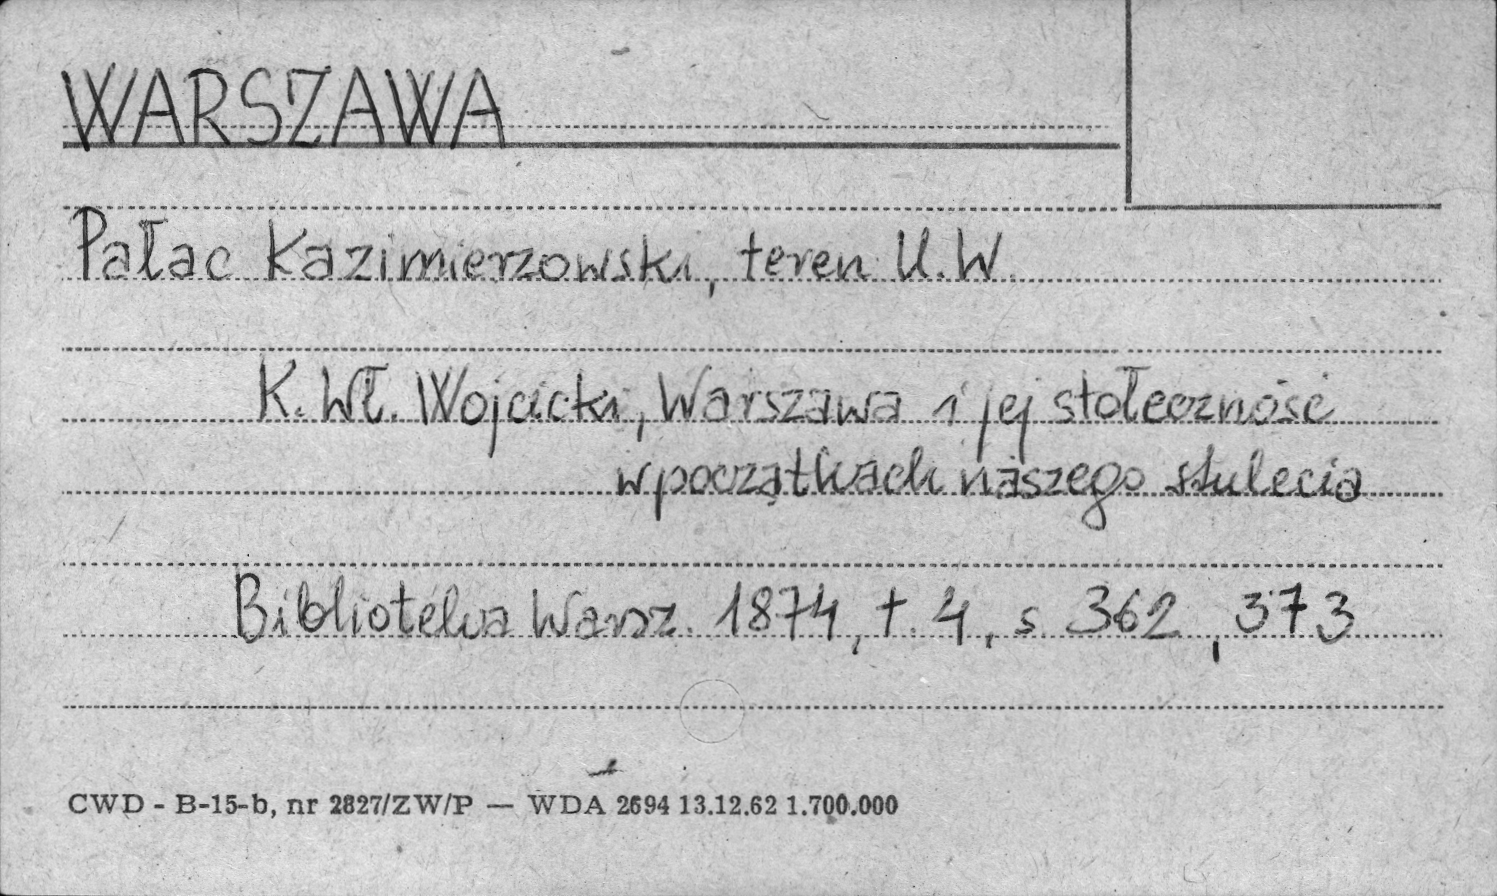 WARSZAWA
Pałac Kazimierzowski, teren U.W.
K. Wł. Wojcicki, Warszawa i jej stołeczność
w początkach naszego stulecia
Biblioteka Warsz. 1874, t. 4, s. 362, 373
CWD - B-15-b, nr 2827/ZW/P — WDA 2694 13.12.62 1.700.000